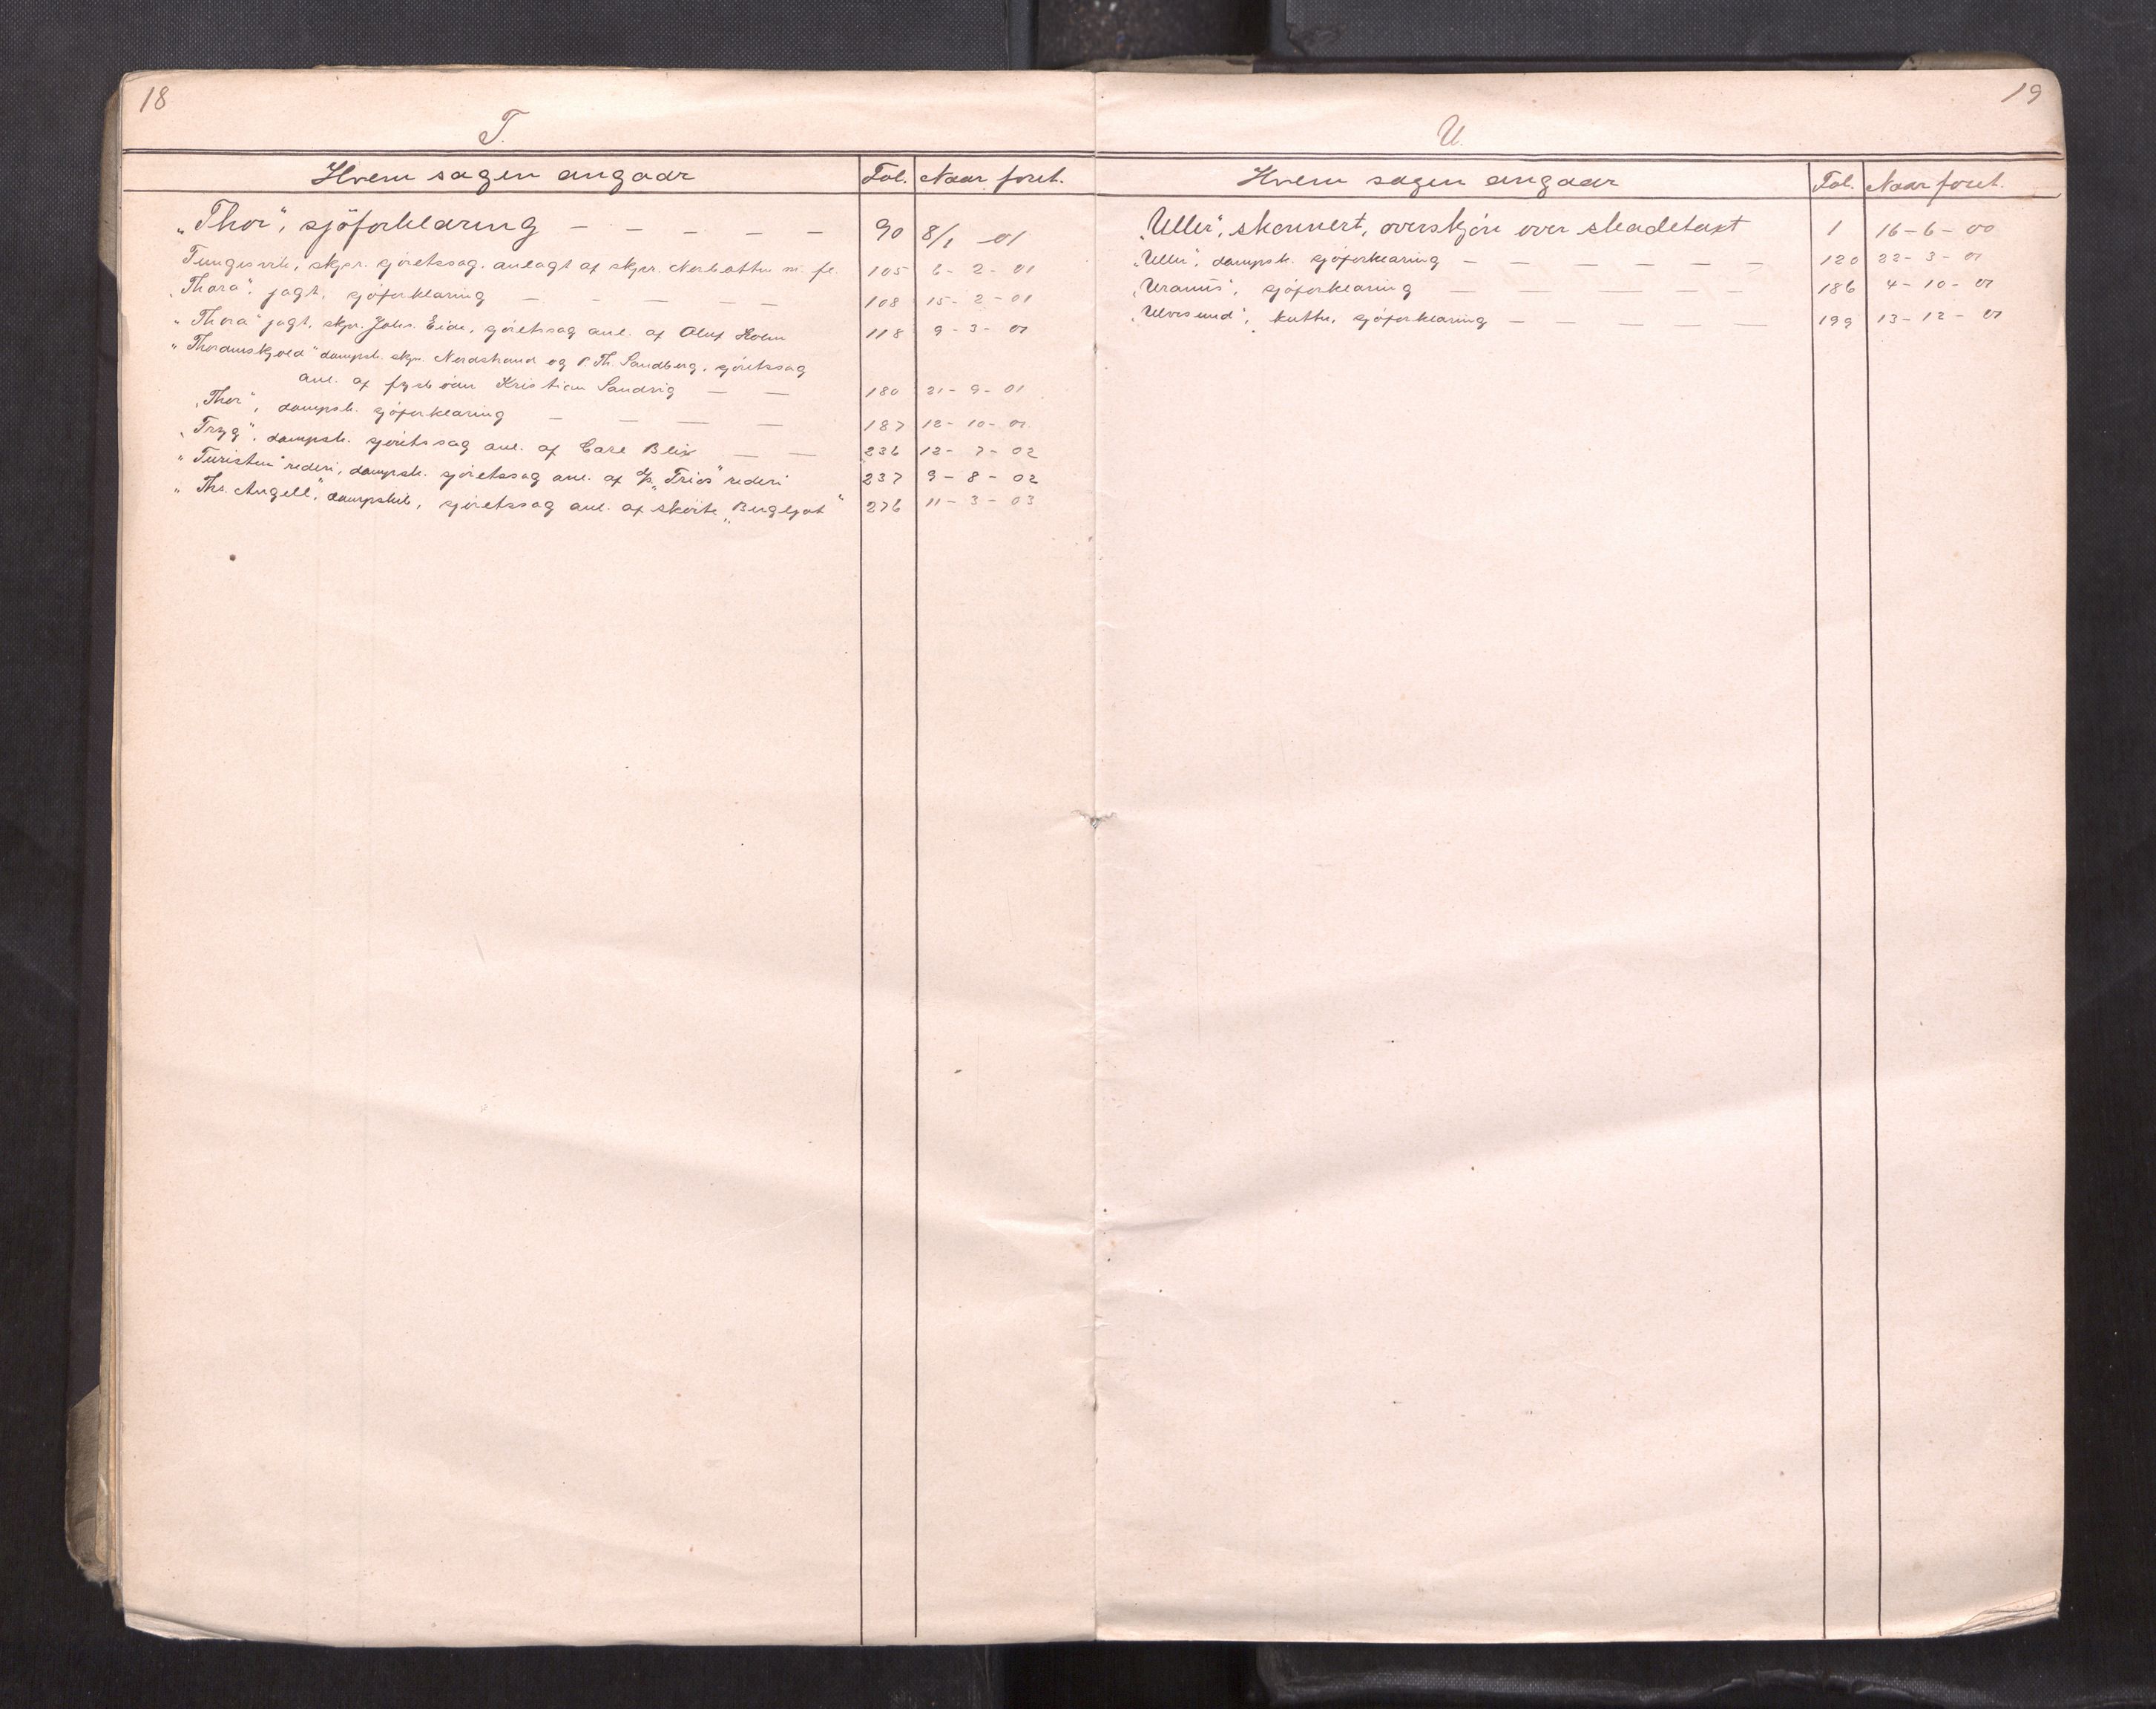 18
T.
Hvem sagen angaar Fol. Naar foret.
„Thor", sjöforklaring — — — — — 90 8/1 -01
skpr. sjöretssag. anlagt af skpr. m. fl. 105 6-2-01
„Thora", jagt, sjöforklaring — — — — — 108 15-2-01
„Thora" jagt, skpr. Johs. Eide, sjöretssag anl. af Oluf Holm 118 9-3-01
„Thordenskjold" dampsk. skpr. Nordstrand og P. Th. Sandberg, sjöretssag
anl. af fyrböder Kristian Sandvig — — 180 21-9-01
„Thor", dampsk. sjöforklaring — — — — 187 12-10-01
„Tryg", dampsk. sjöretssag anl. af Carl Blix — — 236 12-7-02
„Turisten" rederi, dampsk. sjöretssag anl. af d/s „Trios" rederi 237 9-8-02
„Ths. Angell", dampskib, sjöretssag anl. af sköite „Bergljot" 276 11-3-03
19
U.
Hvem sagen angaar Fol. Naar foret.
„Uller", skonnert, overskjön over skadetaxt 1 16-6-00
„Uller", dampsk. sjöforklaring — — — — — 120 22-3-01
„Uranus", sjöforklaring — — — — — 186 4-10-01
„Ulvesund", kutter, sjöforklaring — — — — — 199 13-12-01